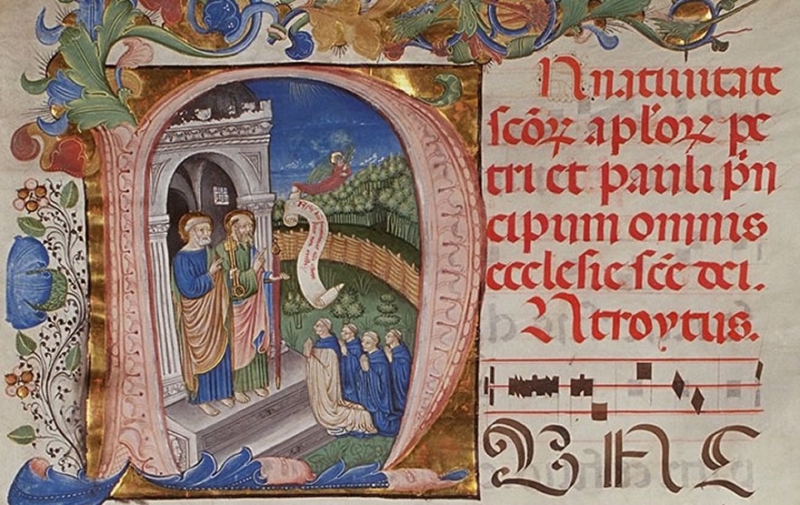 N
In natiuitate
scōꝝ aplōꝝ pe
tri et pauli p̄n
cipum omnis
ecclesie scē dei.
Introytus.
UNC